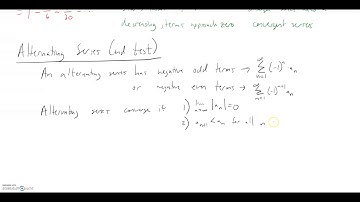 = 1 - 1/6 - 1/20
decreasing, terms approach zero convergent series
Alternating Series (and test)
An alternating series has negative odd terms → ∑ n=1 ∞ (-1)^n a_n
or negative even terms → ∑ n=1 ∞ (-1)^{n+1} a_n
Alternating series converge if 1) lim n→∞ |a_n| = 0
2) a_{n+1} < a_n for all n